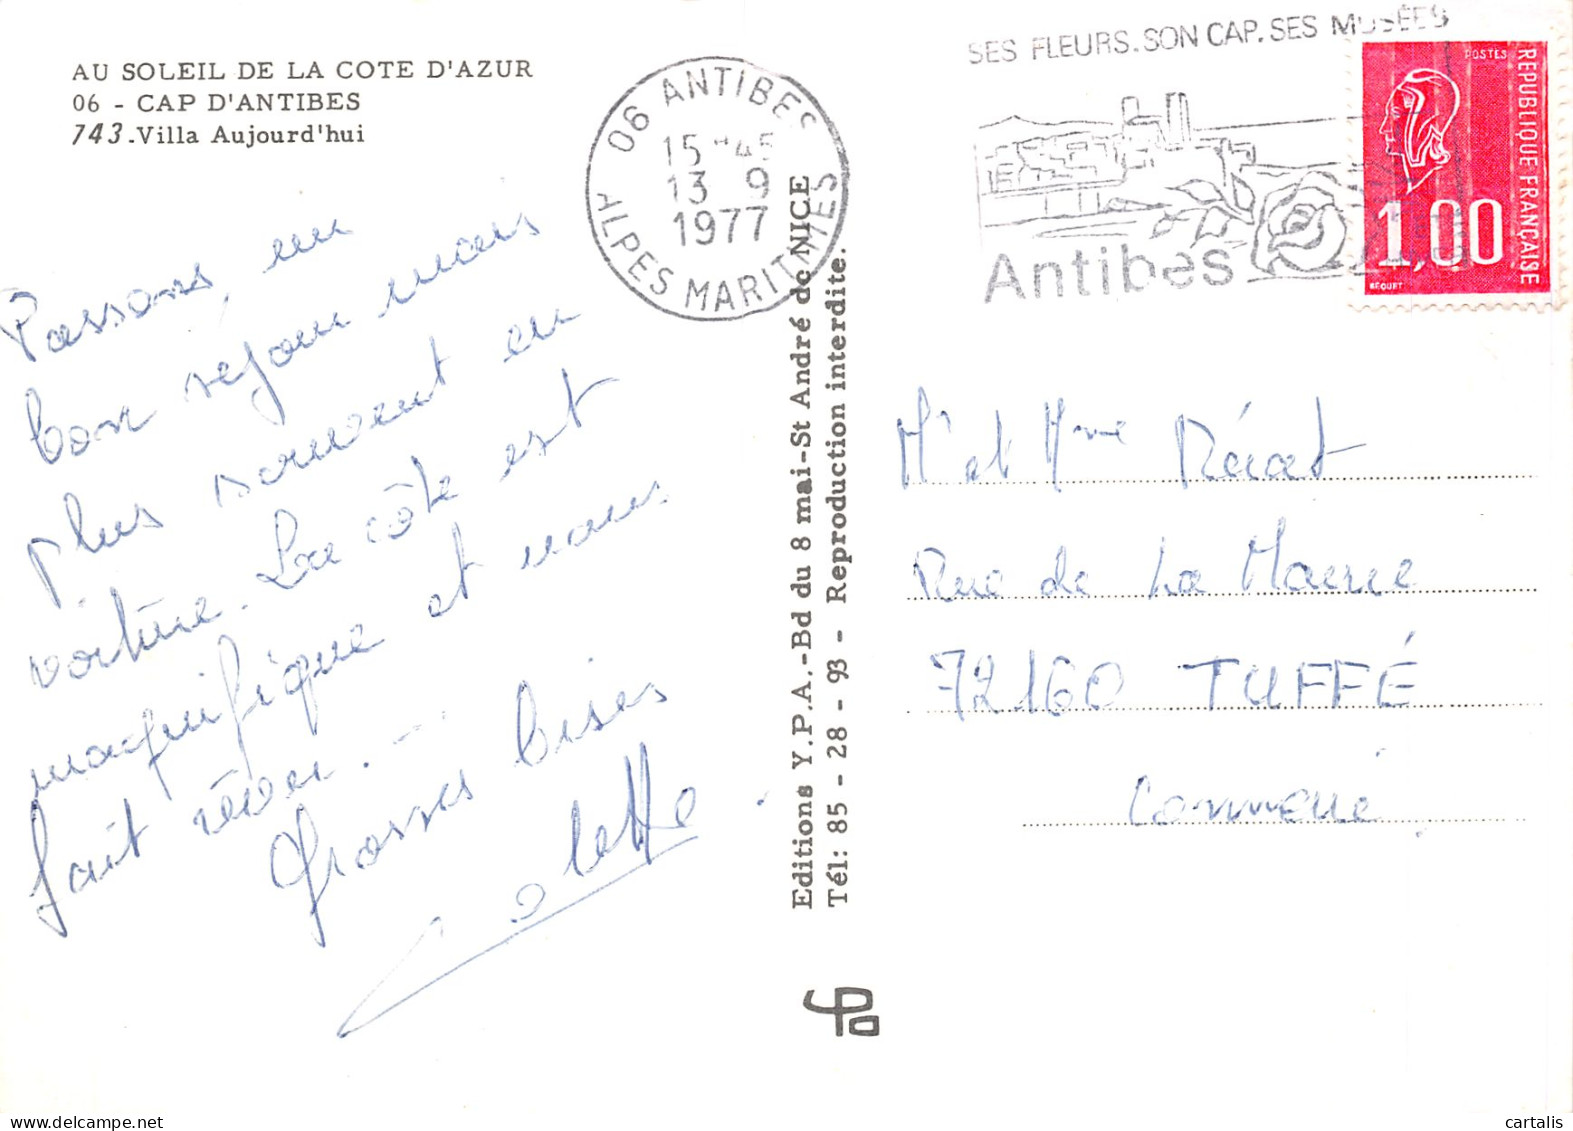 AU SOLEIL DE LA COTE D'AZUR
06 - CAP D'ANTIBES
743.Villa Aujourd'hui
Passons, un
bon séjour mais
plus souvent en
voiture. La côte est
magnifique et nous
fait rêver.
Grosses bises
Colette
06 ANTIBES
15 H45
13 9
1977
ALPES MARITIMES
SES FLEURS. SON CAP. SES MUSÉES
Antibes
POSTES
REPUBLIQUE FRANÇAISE
1,00
BEQUET
Editions Y.P.A.-Bd du 8 mai-St André de NICE
Tél: 85 - 28 - 93 - Reproduction interdite.
Mr et Mme
Rue de La
72160 TUFFÉ
cartalis